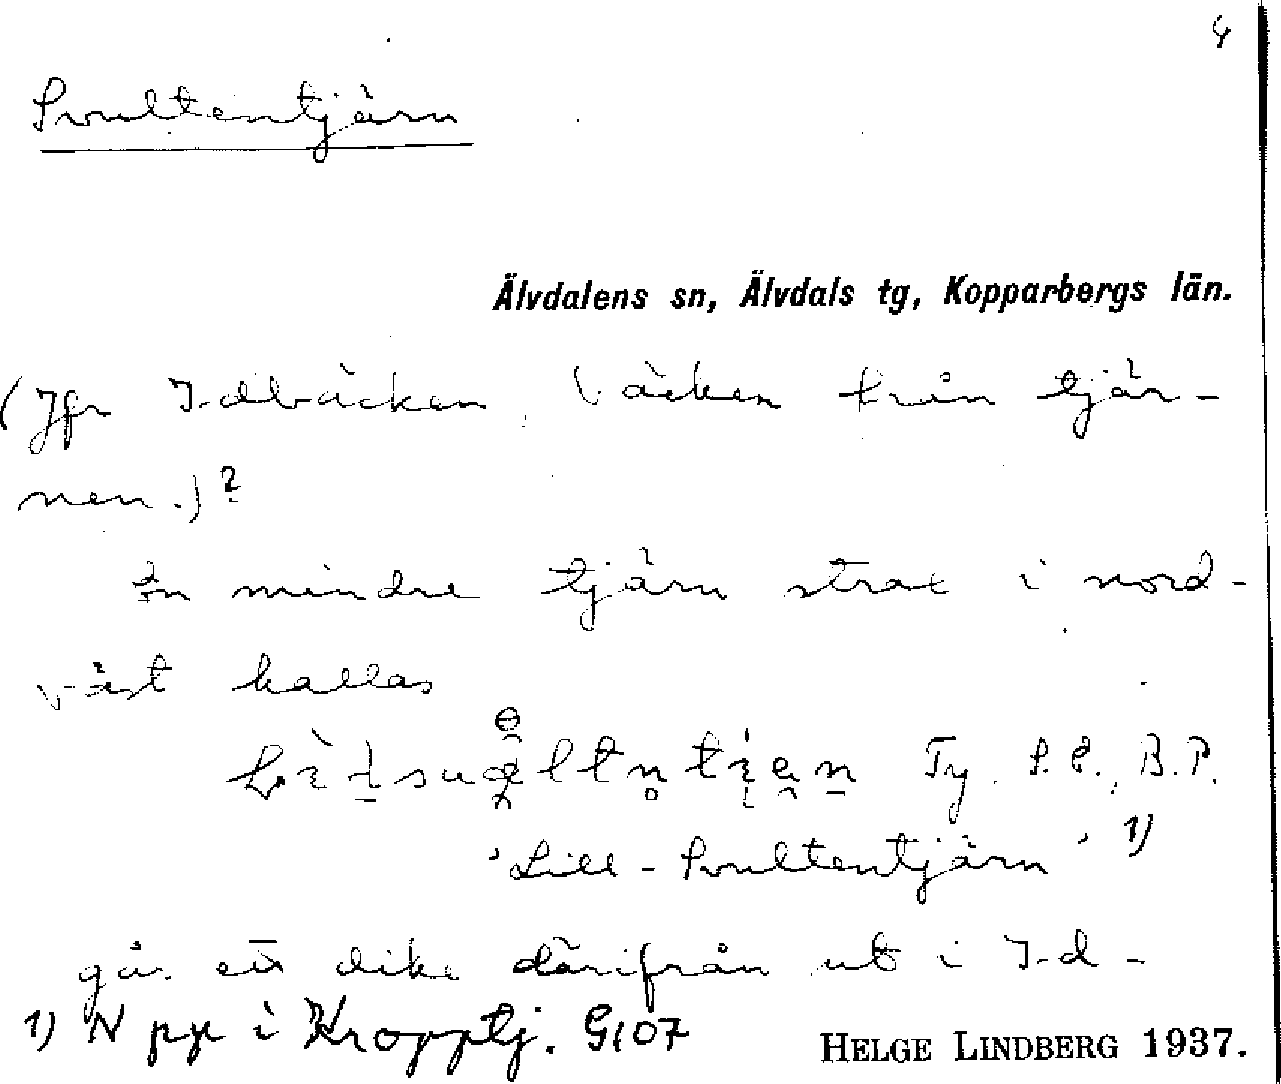 4
Svultentjärn
Älvdalens sn, Älvdals tg, Kopparbergs län.
(Jfr Idbäcken, bäcken från tjär-
nen.)?
En mindre tjärn strax i nord-
väst kallas
Ty. B.P.
'Lill-Svultentjärn' 1)
går ett dike därifrån ut i Id-
1) N pp i Kropptj. G107
HELGE LINDBERG 1937.